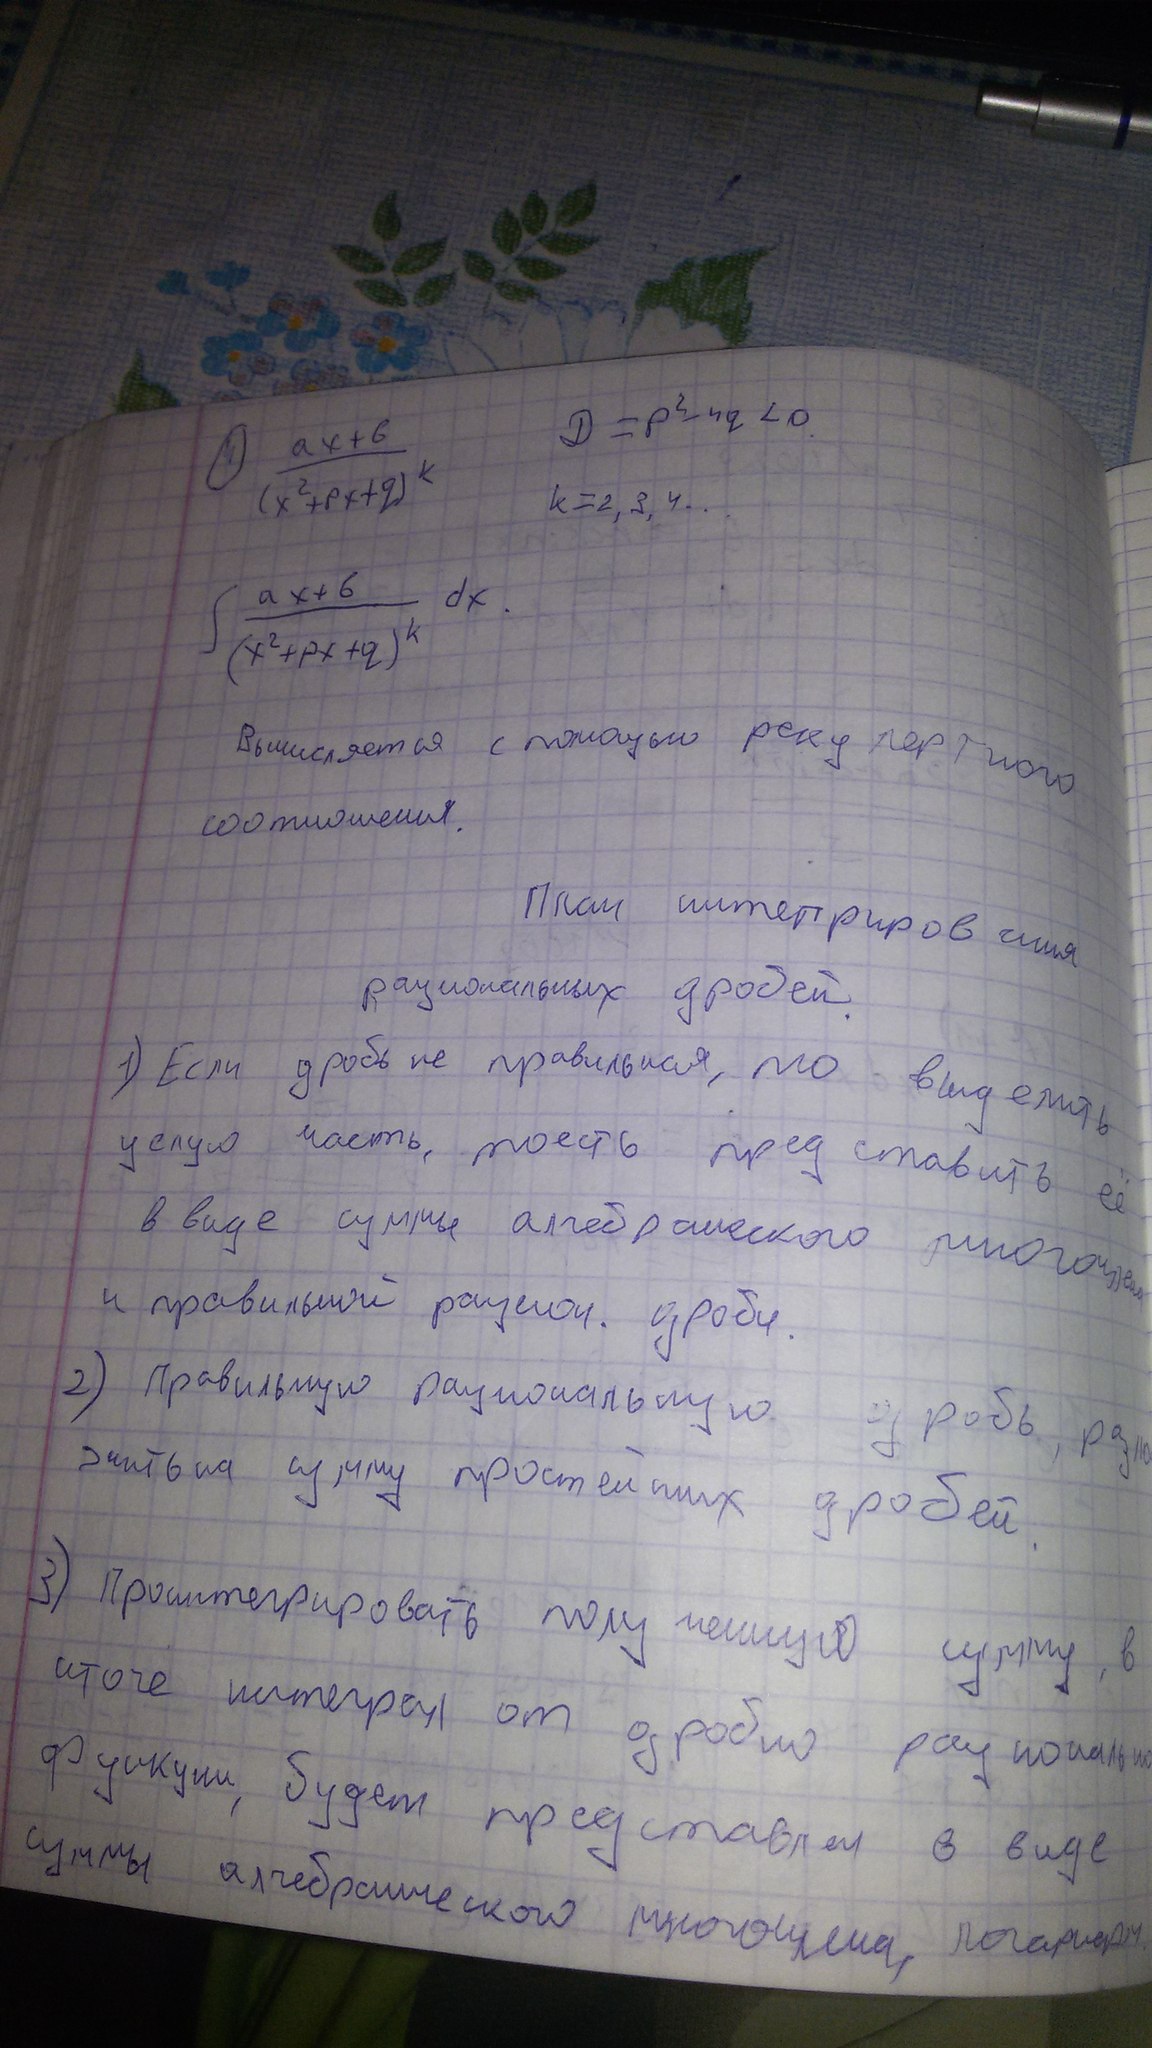 ④ (ax+b)/(x²+px+q)^k D = p²-4q < 0
k = 2, 3, 4...
∫ (ax+b)/(x²+px+q)^k dx.
Вычисляется с помощью рекупертного
соотношения.
План интегрирования
рациональных дробей.
1) Если дробь не правильная, то выделить
целую часть, тоесть представить её
в виде суммы алгебраического многочлена
и правильной рацион. дроби.
2) Правильную рациональную дробь, разло
жить на сумму простейших дробей.
3) Проинтегрировать полученную сумму, в
итоге интеграл от дробно рационально
функции, будет представлен в виде
суммы алгебраического многочлена, логарифм.